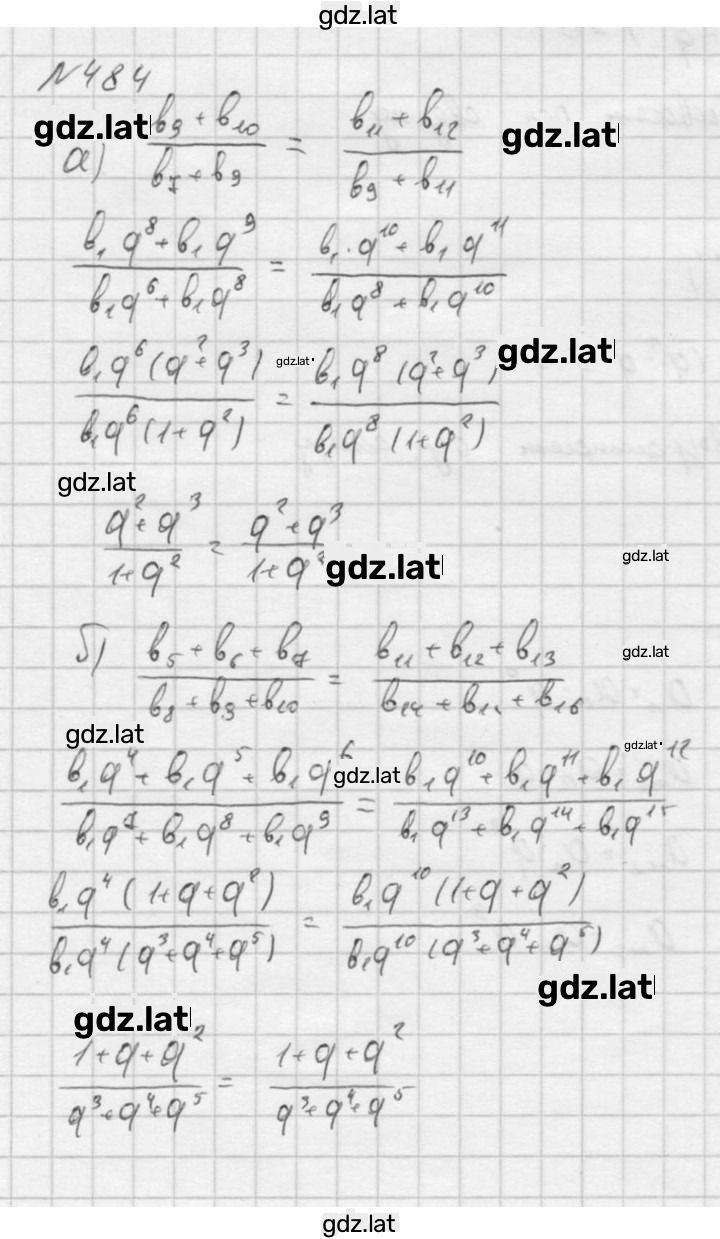 gdz.lat
№484
gdz.lat
а) (b₉ + b₁₀)/(b₇ + b₉) = (b₁₁ + b₁₂)/(b₉ + b₁₁)
gdz.lat
(b₁q⁸ + b₁q⁹)/(b₁q⁶ + b₁q⁸) = (b₁·q¹⁰ + b₁q¹¹)/(b₁q⁸ + b₁q¹⁰)
(b₁q⁶(q² + q³))/(b₁q⁶(1+q²)) = (b₁q⁸(q² + q³))/(b₁q⁸(1+q²))
gdz.lat
gdz.lat
gdz.lat
(q² + q³)/(1+q²) = (q² + q³)/(1+q²)
gdz.lat
gdz.lat
б) (b₅ + b₆ + b₇)/(b₈ + b₉ + b₁₀) = (b₁₁ + b₁₂ + b₁₃)/(b₁₄ + b₁₅ + b₁₆)
gdz.lat
gdz.lat
gdz.lat
gdz.lat
(b₁q⁴ + b₁q⁵ + b₁q⁶)/(b₁q⁷ + b₁q⁸ + b₁q⁹) = (b₁q¹⁰ + b₁q¹¹ + b₁q¹²)/(b₁q¹³ + b₁q¹⁴ + b₁q¹⁵)
(b₁q⁴(1+q+q²))/(b₁q⁴(q³+q⁴+q⁵)) = (b₁q¹⁰(1+q+q²))/(b₁q¹⁰(q³+q⁴+q⁵))
gdz.lat
gdz.lat
(1+q+q²)/(q³+q⁴+q⁵) = (1+q+q²)/(q³+q⁴+q⁵)
gdz.lat